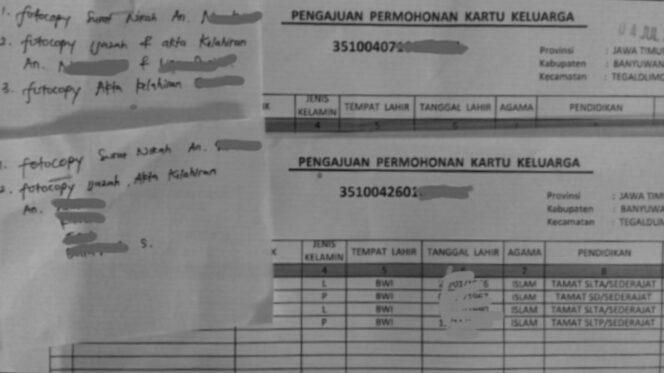 1. fotocopy Surat Nikah An.
2. fotocopy Ijazah & akta Kelahiran
An. &
3. fotocopy Akta Kelahiran
PENGAJUAN PERMOHONAN KARTU KELUARGA
351004071
04 JUL
Provinsi : JAWA TIMU
Kabupaten : BANYUWAN
Kecamatan : TEGALDLIMO
K JENIS KELAMIN TEMPAT LAHIR TANGGAL LAHIR AGAMA PENDIDIKAN
4 5 6
1. fotocopy Surat Nikah An. S
2. fotocopy Ijazah, Akta Kelahiran
An.
S.
PENGAJUAN PERMOHONAN KARTU KELUARGA
3510042601
Provinsi : JAWA TIM
Kabupaten : BANYUWA
Kecamatan : TEGALDL
K JENIS KELAMIN TEMPAT LAHIR TANGGAL LAHIR AGAMA PENDIDIKAN
4 5 7 8
L BWI ISLAM TAMAT SLTA/SEDERAJAT
P BWI ISLAM TAMAT SD/SEDERAJAT
L BWI ISLAM TAMAT SLTA/SEDERAJAT
P BWI 1 ISLAM TAMAT SLTP/SEDERAJAT